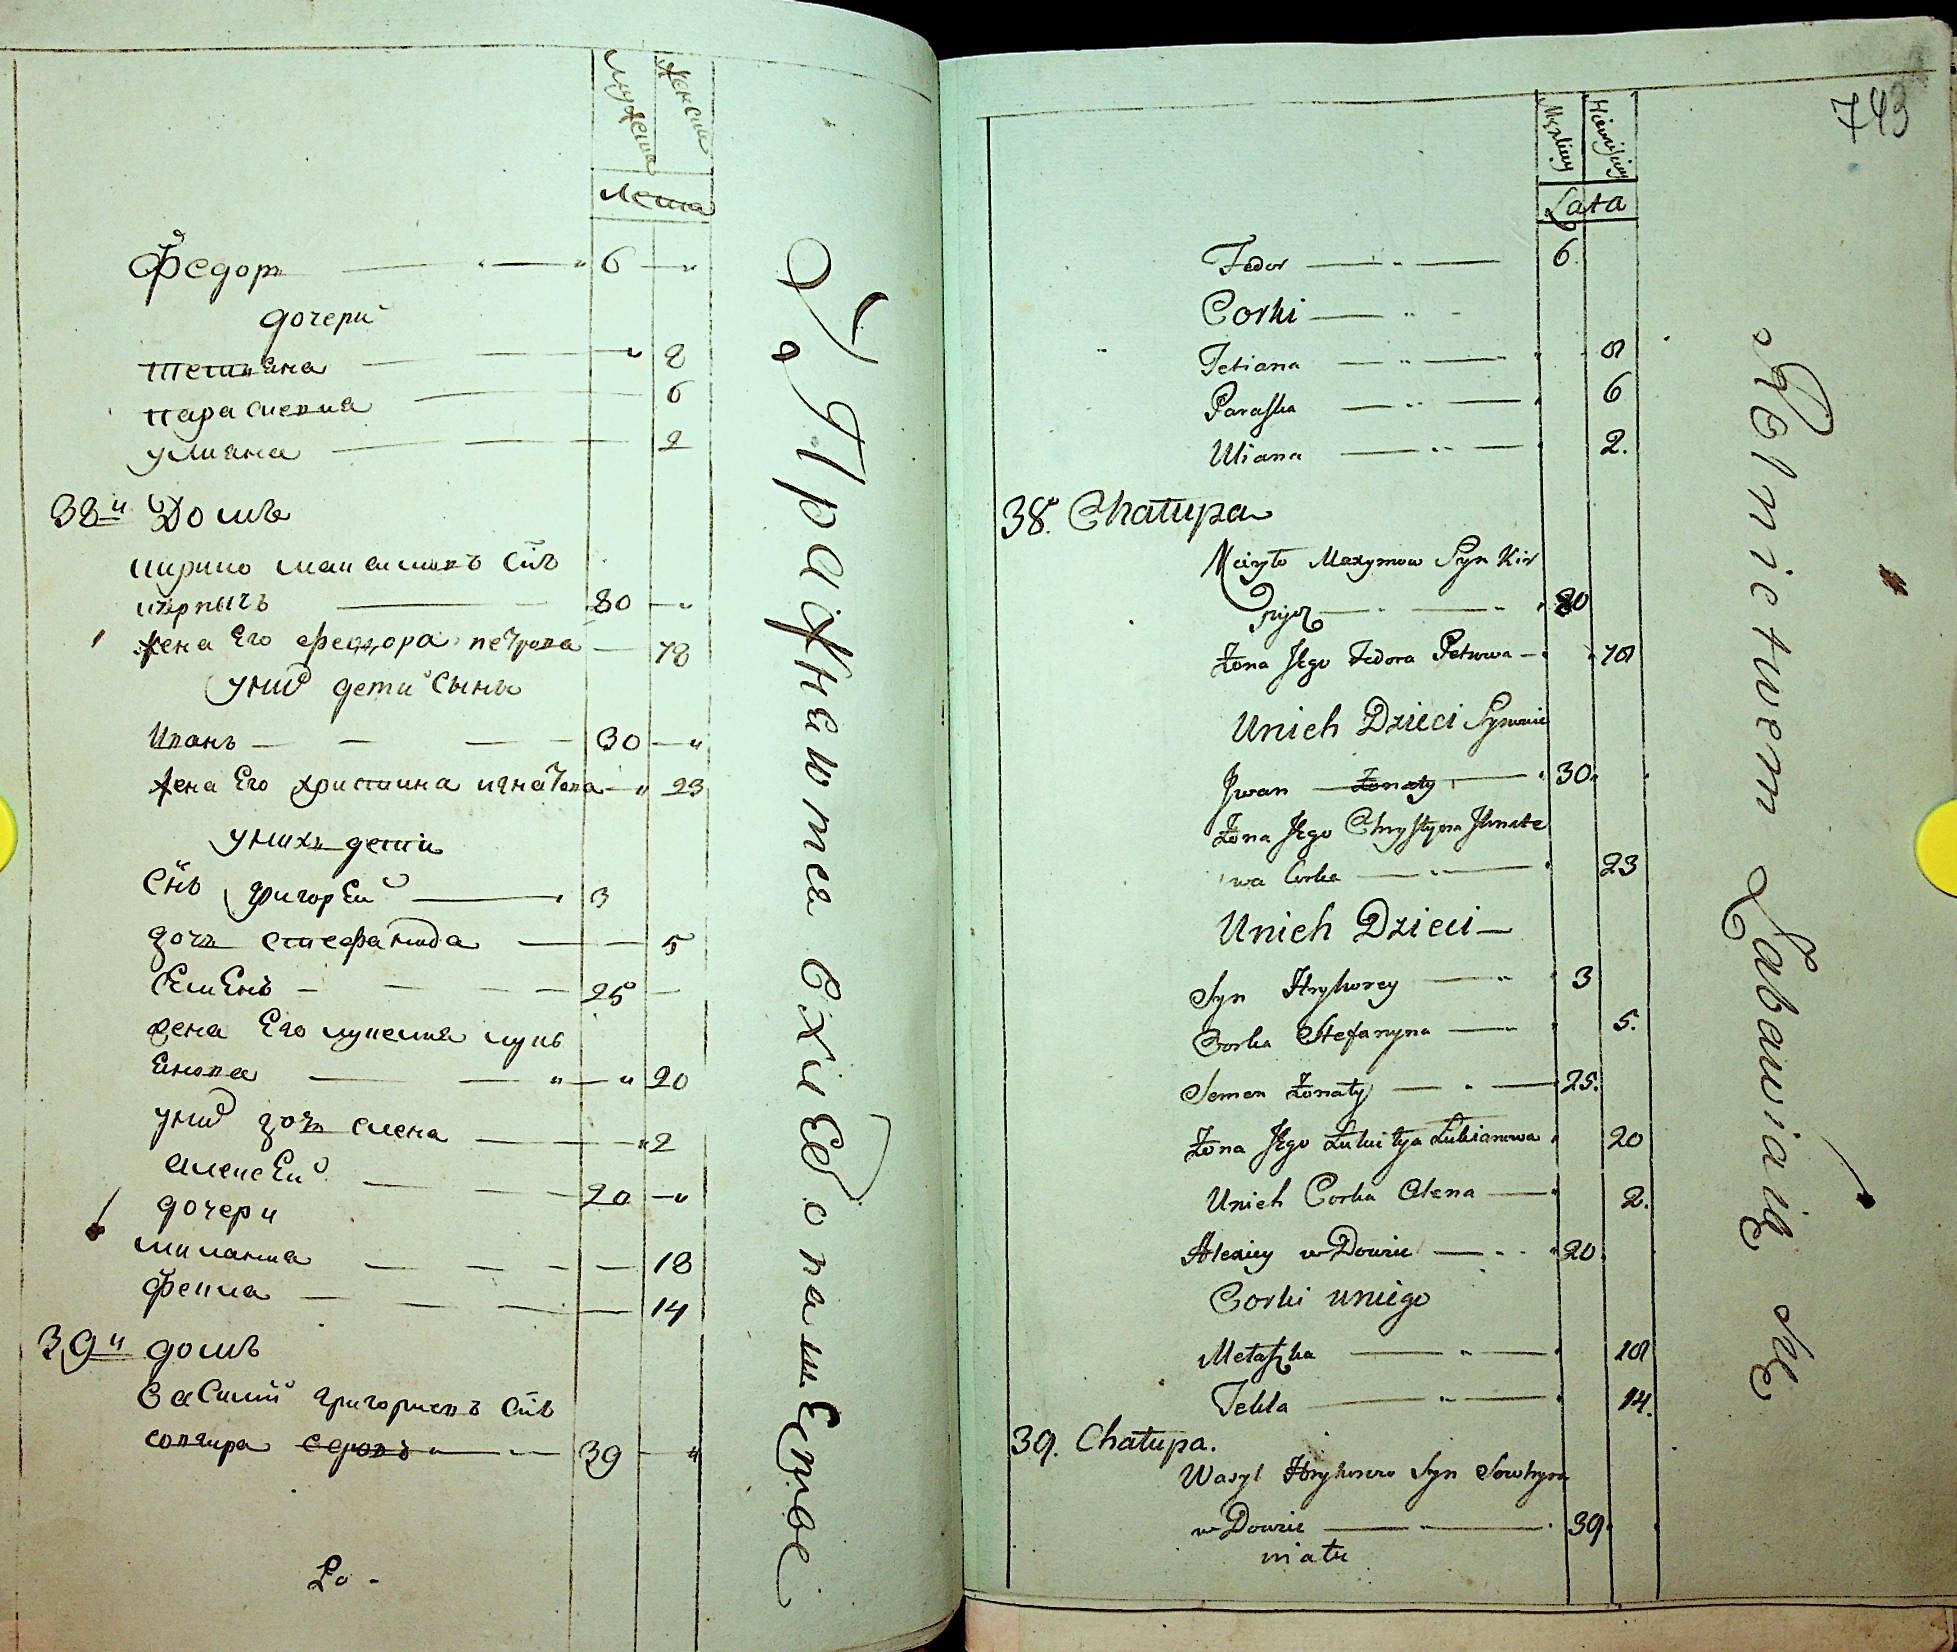 мужеска
женска
лета
Федоръ 6
дочери
татиана 8
параскевиа 6
улиана 2
38й Домъ
кирило максимовъ снъ
80
жена Его феодора петрова 78
у них дети Сыны
Иванъ 30
жена Его христина игнатова 23
у нихъ дети
Снъ григорЕй 3
дочъ стефанида 5
СЕмЕнъ 25
жена Его лукия лукь
Енова 20
у них дочъ елена 2
алексЕй 20
дочери
миланиа 18
Фекла 14
39й домъ
Василий григориевъ снъ
39
Упражнаются в хлебопашЕстве
743
Męzkiey
Żieńskiey
Lata
Fedor 6.
Corki
Tetiana 8
Paraska 6
Uliana 2.
38. Chatupa
Kiryło Maxymow Syn Kir
80
Żona Jego Fedora Petrowa 78
Unich Dzieci Synowie
Jwan Żonaty 30.
Żona Jego Chrystyna Jhnate
wa Corka 23
Unich Dzieci
Syn Hryhorey 3
Corka Stefanyna 5.
Semen Żonaty 25.
Żona Jego Łukiia Łukianowa 20
Unich Corka Alena 2.
Alexiey w Dowie 20.
Corki uniego
Metaszka 18
Tekla 14.
39. Chatupa.
Wasyl Hryhorow Syn
w Dowie 39.
matu
Rolnictwem Zabawiaią się